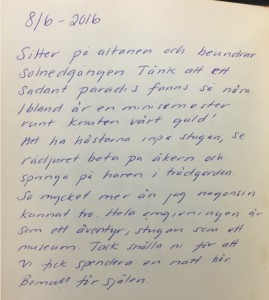 8/6-2016
Sitter på altanen och beundrar
solnedgången Tänk att ett
sådant paradis fanns så nära
Ibland är en minisemester
runt knuten värt guld!
Att ha hästarna inpå stugan, se
rådjuret beta på åkern och
springa på haren i trädgården.
Så mycket mer än jag någonsin
kunnat tro. Hela omgivningen är
som ett äventyr, stugan som ett
museum. Tack snälla ni för att
vi fick spendera en natt här.
Bomull för själen.